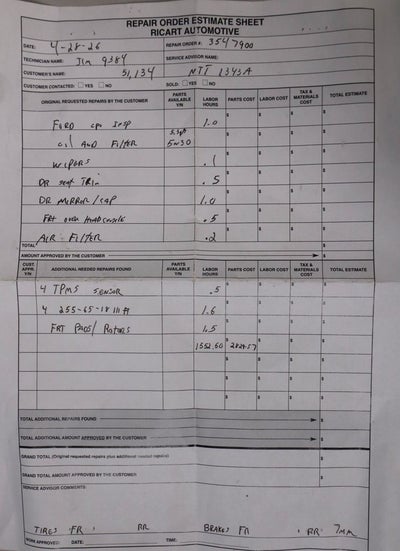 REPAIR ORDER ESTIMATE SHEET
RICART AUTOMOTIVE
DATE: 4-28-26 REPAIR ORDER #: 3547900
TECHNICIAN NAME: Jim 9384 SERVICE ADVISOR NAME:
CUSTOMER'S NAME: 51,134 NTT 1343A
CUSTOMER CONTACTED: YES NO SOLD: YES NO
ORIGINAL REQUESTED REPAIRS BY THE CUSTOMER PARTS AVAILABLE Y/N LABOR HOURS PARTS COST LABOR COST TAX & MATERIALS COST TOTAL ESTIMATE
FORD cpo Insp 1.0
oil AND FILTER 5W30
WIPERS .1
DR seat TRIM .5
DR MIRROR/CAP 1.0
FRT over Head console .5
AIR FILTER .2
TOTAL
AMOUNT APPROVED BY THE CUSTOMER
CUST. APPR. Y/N ADDITIONAL NEEDED REPAIRS FOUND PARTS AVAILABLE Y/N LABOR HOURS PARTS COST LABOR COST TAX & MATERIALS COST TOTAL ESTIMATE
4 TPMS SENSOR .5
4 255-65-18 111 1.6
FRT PADS/ROTORS 1.5
1552.60 2828.57
TOTAL ADDITIONAL REPAIRS FOUND
TOTAL ADDITIONAL AMOUNT APPROVED BY THE CUSTOMER
GRAND TOTAL (Original requested repairs plus additional needed repairs)
GRAND TOTAL AMOUNT APPROVED BY THE CUSTOMER
SERVICE ADVISOR COMMENTS:
TIRES FR RR BRAKES FR RR 7mm
WORK APPROVED: DATE: TIME: